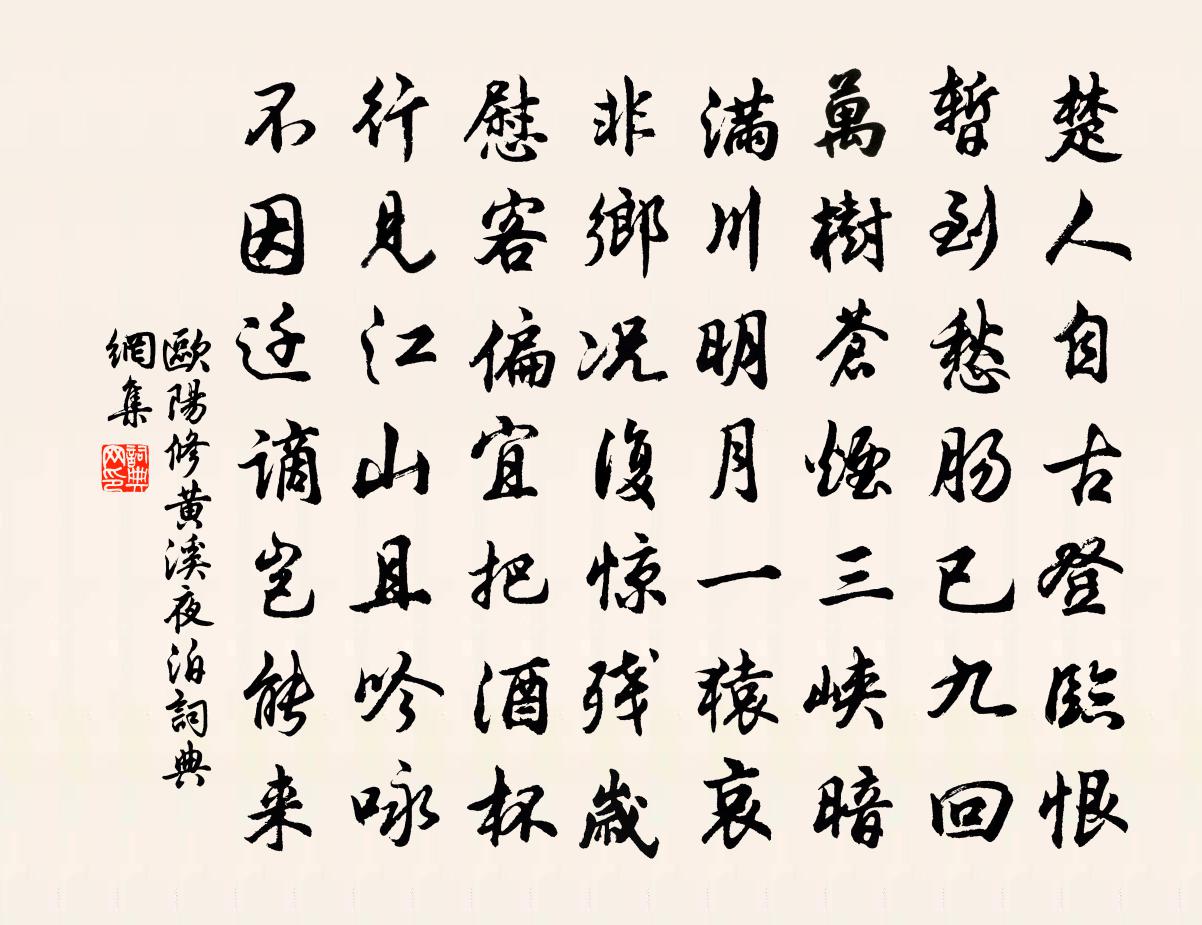 楚人自古登臨恨
暫到愁肠已九回
萬樹蒼煙三峽暗
滿川明月一猿哀
非鄉况復惊残歲
慰客偏宜把酒杯
行見江山且吟咏
不因迁謫岂能来
歐陽修黄溪夜泊詞典
網集
詞典网印